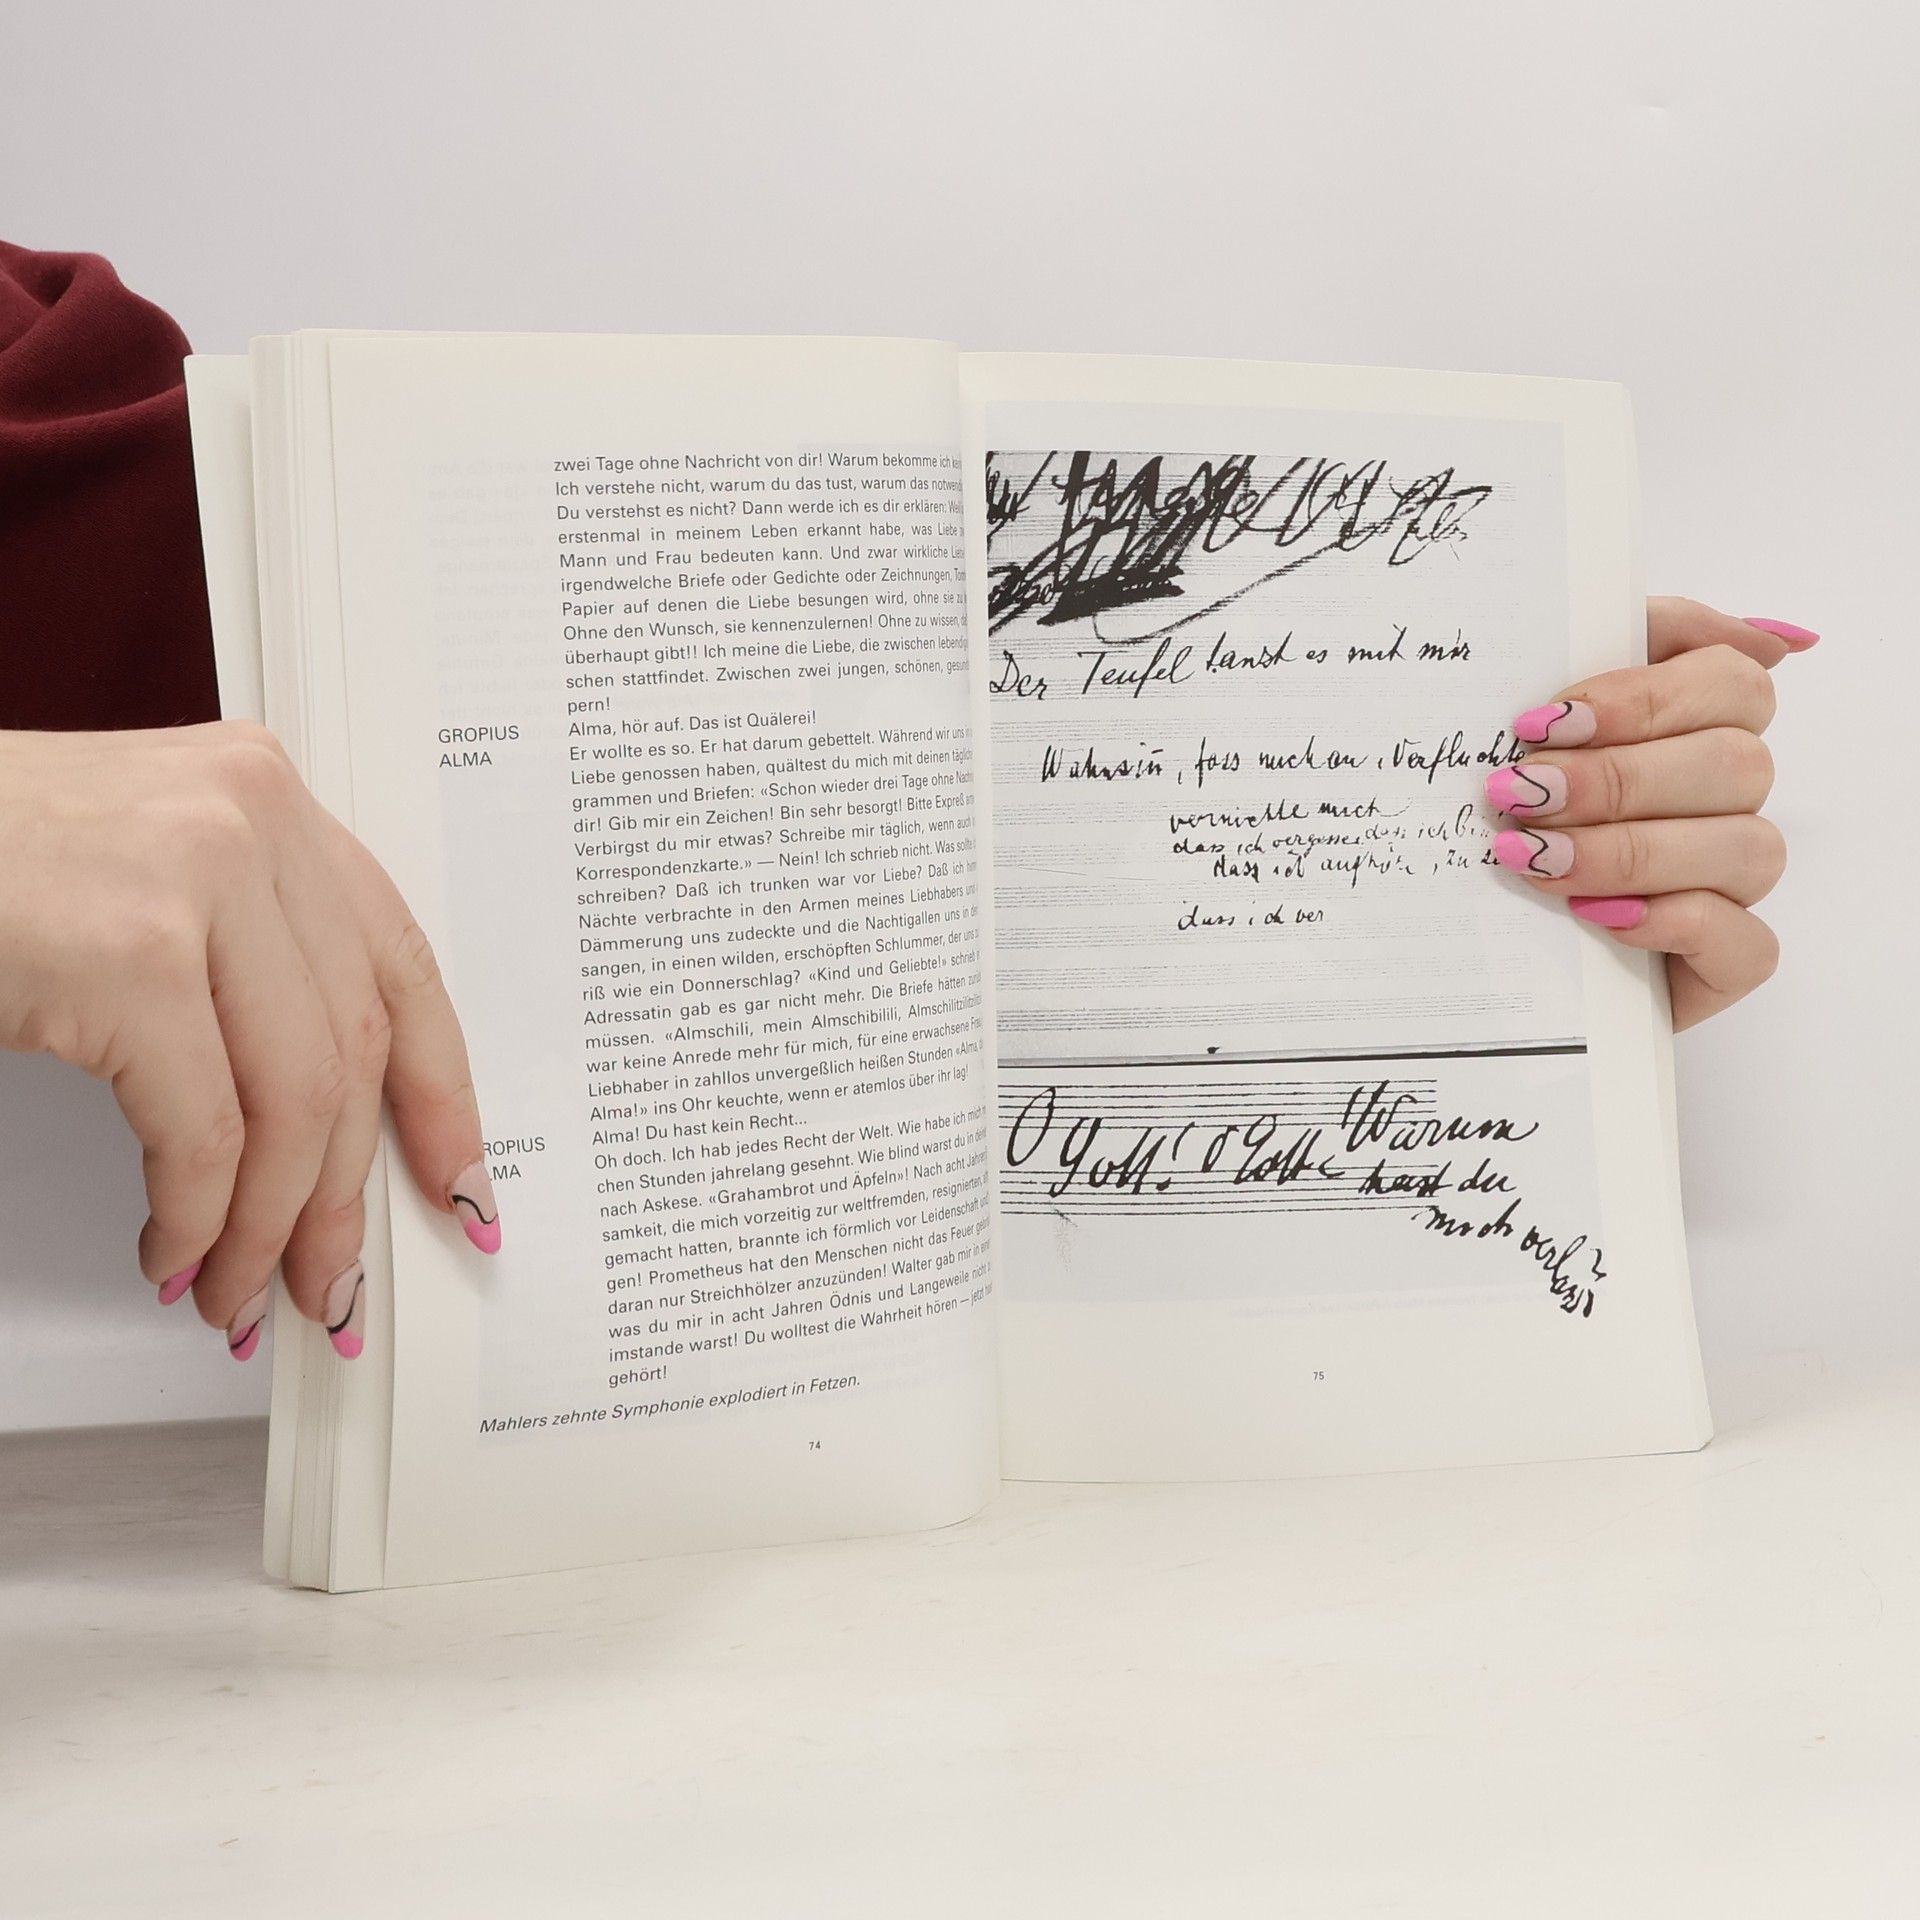 zwei Tage ohne Nachricht von dir! Warum bekomme ich
Ich verstehe nicht, warum du das tust, warum das
Du verstehst es nicht? Dann werde ich es dir erklären:
erstenmal in meinem Leben erkannt habe, was Liebe
Mann und Frau bedeuten kann. Und zwar wirkliche
irgendwelche Briefe oder Gedichte oder Zeichnungen,
Papier auf denen die Liebe besungen wird, ohne sie zu
Ohne den Wunsch, sie kennenzulernen! Ohne zu wissen,
überhaupt gibt!! Ich meine die Liebe, die zwischen
schen stattfindet. Zwischen zwei jungen, schönen,
pern!
GROPIUS Alma, hör auf. Das ist Quälerei!
ALMA Er wollte es so. Er hat darum gebettelt. Während wir uns
Liebe genossen haben, quältest du mich mit deinen
grammen und Briefen: «Schon wieder drei Tage ohne
dir! Gib mir ein Zeichen! Bin sehr besorgt! Bitte Expreß
Verbirgst du mir etwas? Schreibe mir täglich, wenn auch
Korrespondenzkarte.» — Nein! Ich schrieb nicht. Was
schreiben? Daß ich trunken war vor Liebe? Daß ich
Nächte verbrachte in den Armen meines Liebhabers
Dämmerung uns zudeckte und die Nachtigallen uns in
sangen, in einen wilden, erschöpften Schlummer, der uns
riß wie ein Donnerschlag? «Kind und Geliebte!» schrieb
Adressatin gab es gar nicht mehr. Die Briefe hätten
müssen. «Almschili, mein Almschibilili,
war keine Anrede mehr für mich, für eine erwachsene
Liebhaber in zahllos unvergeßlich heißen Stunden «Alma,
Alma!» ins Ohr keuchte, wenn er atemlos über ihr lag!
ROPIUS Alma! Du hast kein Recht...
LMA Oh doch. Ich hab jedes Recht der Welt. Wie habe ich mich
chen Stunden jahrelang gesehnt. Wie blind warst du in
nach Askese. «Grahambrot und Äpfeln»! Nach acht
samkeit, die mich vorzeitig zur weltfremden,
gemacht hatten, brannte ich förmlich vor Leidenschaft
gen! Prometheus hat den Menschen nicht das Feuer
daran nur Streichhölzer anzuzünden! Walter gab mir in
was du mir in acht Jahren Ödnis und Langeweile nicht
imstande warst! Du wolltest die Wahrheit hören — jetzt
gehört!
Mahlers zehnte Symphonie explodiert in Fetzen.
74
Der Teufel tanzt es mit mir
Wahnsin̄, fass mich an, Verfluchten
vernichte mich
dass ich vergesse, dass ich bin!
dass ich aufhöre, zu
dass ich ver
O Gott! O Gott! Warum
hast du
mich verlassen?
75